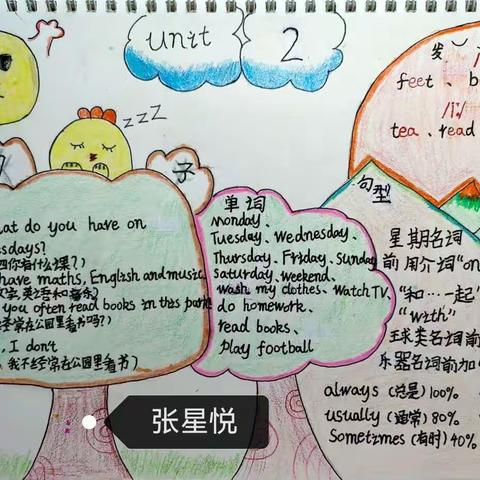 unit 2
zzz
子
hat do you have on
esdays?
四你有什么课?)
have maths, English and music.
文学,英语和音乐)
you often read books in this park
经常在公园里看书吗?)
, I don't
、我不经常在公园里看书)
单词
monday、
Tuesday、Wednesday、
Thursday、Friday、Sunday
saturday、weekend、
wash my clothes、watch TV、
do homework、
read books、
play football
发
feet、b
/i:/
tea、read
句型
星期名词
前用介词"on
"和…一起"
"with"
球类名词前
乐器名词前加
always (总是) 100%
usually (通常) 80%
Sometimes (有时) 40%
张星悦